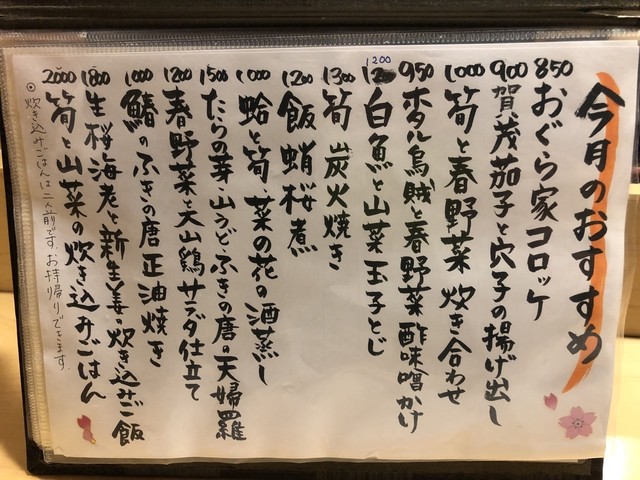 今月のおすすめ
850 おぐら家コロッケ
900 賀茂茄子と穴子の揚げ出し
1000 筍と春野菜 炊き合わせ
950 ホタル烏賊と春野菜 酢味噌かけ
1200 白魚と山菜 玉子とじ
1300 筍 炭火焼き
1200 飯蛸桜煮
1000 蛤と筍、菜の花の酒蒸し
1500 たらの芽・山うど・ふきの唐の天婦羅
1200 春野菜と大山鶏 サラダ仕立て
1000 鰆のふきの唐 正油焼き
1800 生桜海老と新生姜の炊き込みご飯
2000 筍と山菜の炊き込みごはん
◎炊き込みごはんは二人前です。お持帰りできます。